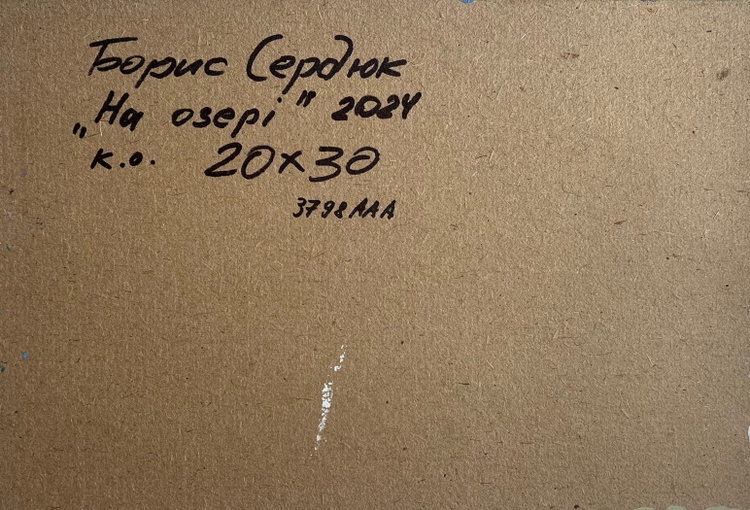 Борис Сердюк
„На озері" 2024
к.о. 20x30
3798AAA